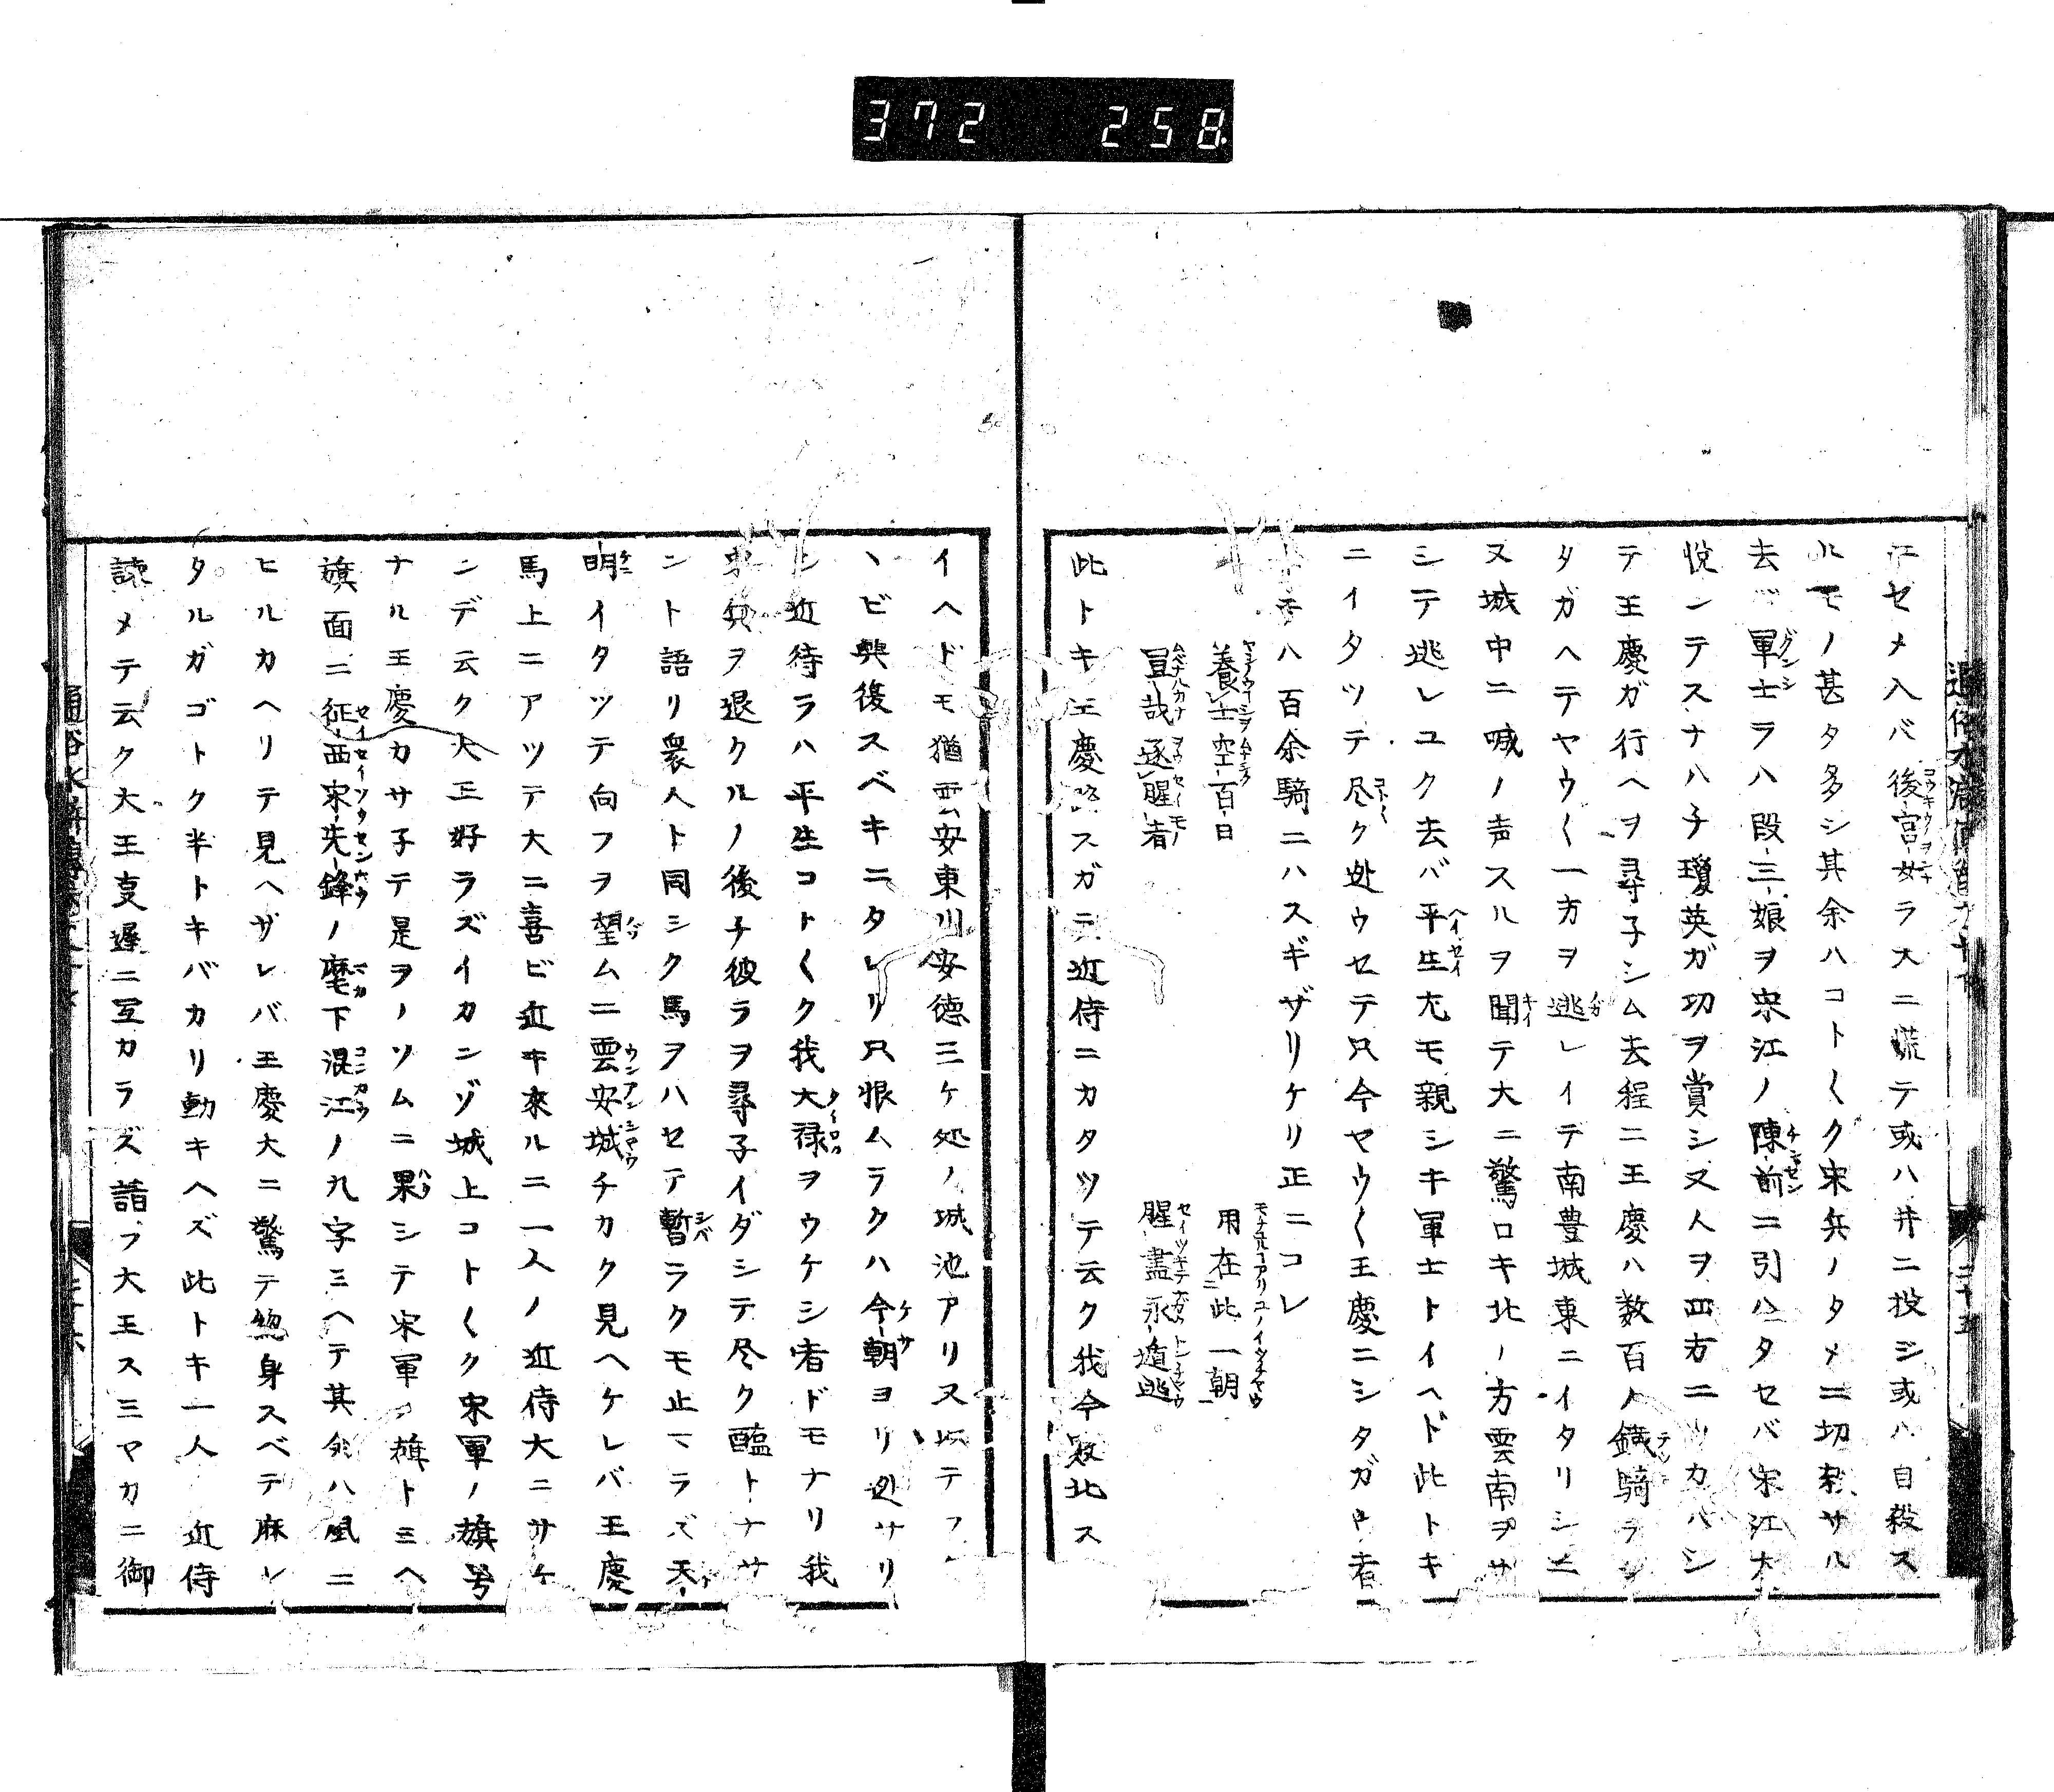 372 258
江セメ入バ後宮女ラ大ニ慌テ或ハ井ニ投シ或ハ自殺ス
ルモノ甚タ多シ其余ハコト〱ク宋兵ノタメニ切殺サル
去バ軍士ラハ段三娘ヲ宋江ノ陳前ニ引ハタセバ宋江大
悦ンテスナハチ瓊英ガ功ヲ賞シ又人ヲ四方ニツカハシ
テ王慶ガ行ヘヲ尋子シム去程ニ王慶ハ数百ノ鐵騎ラシ
タガヘテヤウ〱一方ヲ逃レイテ南豊城東ニイタリシニ
又城中ニ喊ノ声スルヲ聞テ大ニ驚ロキ北ノ方雲南ヲサ
シテ逃レユク去バ平生尤モ親シキ軍士トイヘド此トキ
ニイタツテ尽ク迯ウセテ只今ヤウ〱王慶ニシタガウ者
ハ百余騎ニハスギザリケリ正ニコレ
養士空百日 用在此一朝
豈哉逐腥者 腥盡永遁逃
此トキ王慶路スガラ近侍ニカタツテ云ク我今敗北ス
イヘドモ猶雲安東川安德三ケ処ノ城池アリ又
ヽビ興復スベキニタレリ只恨ムラクハ今朝ヨリ迯サリ
シ近待ラハ平生コト〱ク我大禄ヲウケシ者ドモナリ我
宋兵ヲ退クルノ後チ彼ラヲ尋子イダシテ尽ク醢トナサ
ント語リ衆人ト同シク馬ヲハセテ暫ラクモ止マラズ天
明イタツテ向フヲ望ムニ雲安城チカク見ヘケレバ王慶
馬上ニアツテ大ニ喜ビ近キ來ルニ一人ノ近侍大ニサケ
ンデ云ク大王好ラズイカンゾ城上コト〱ク宋軍ノ旗号
ナル王慶カサ子テ是ヲノソムニ果シテ宋軍ノ旗トミヘ
旗面ニ征西宋先鋒ノ麾下混江ノ九字ミヘテ其余ハ風ニ
ヒルカヘリテ見ヘザレバ王慶大ニ驚テ惣身スベテ麻レ
タルガゴトク半トキバカリ動キヘズ此トキ一人 近侍
諫メテ云ク大王支遲ニ互カラズ請フ大王スミマカニ御